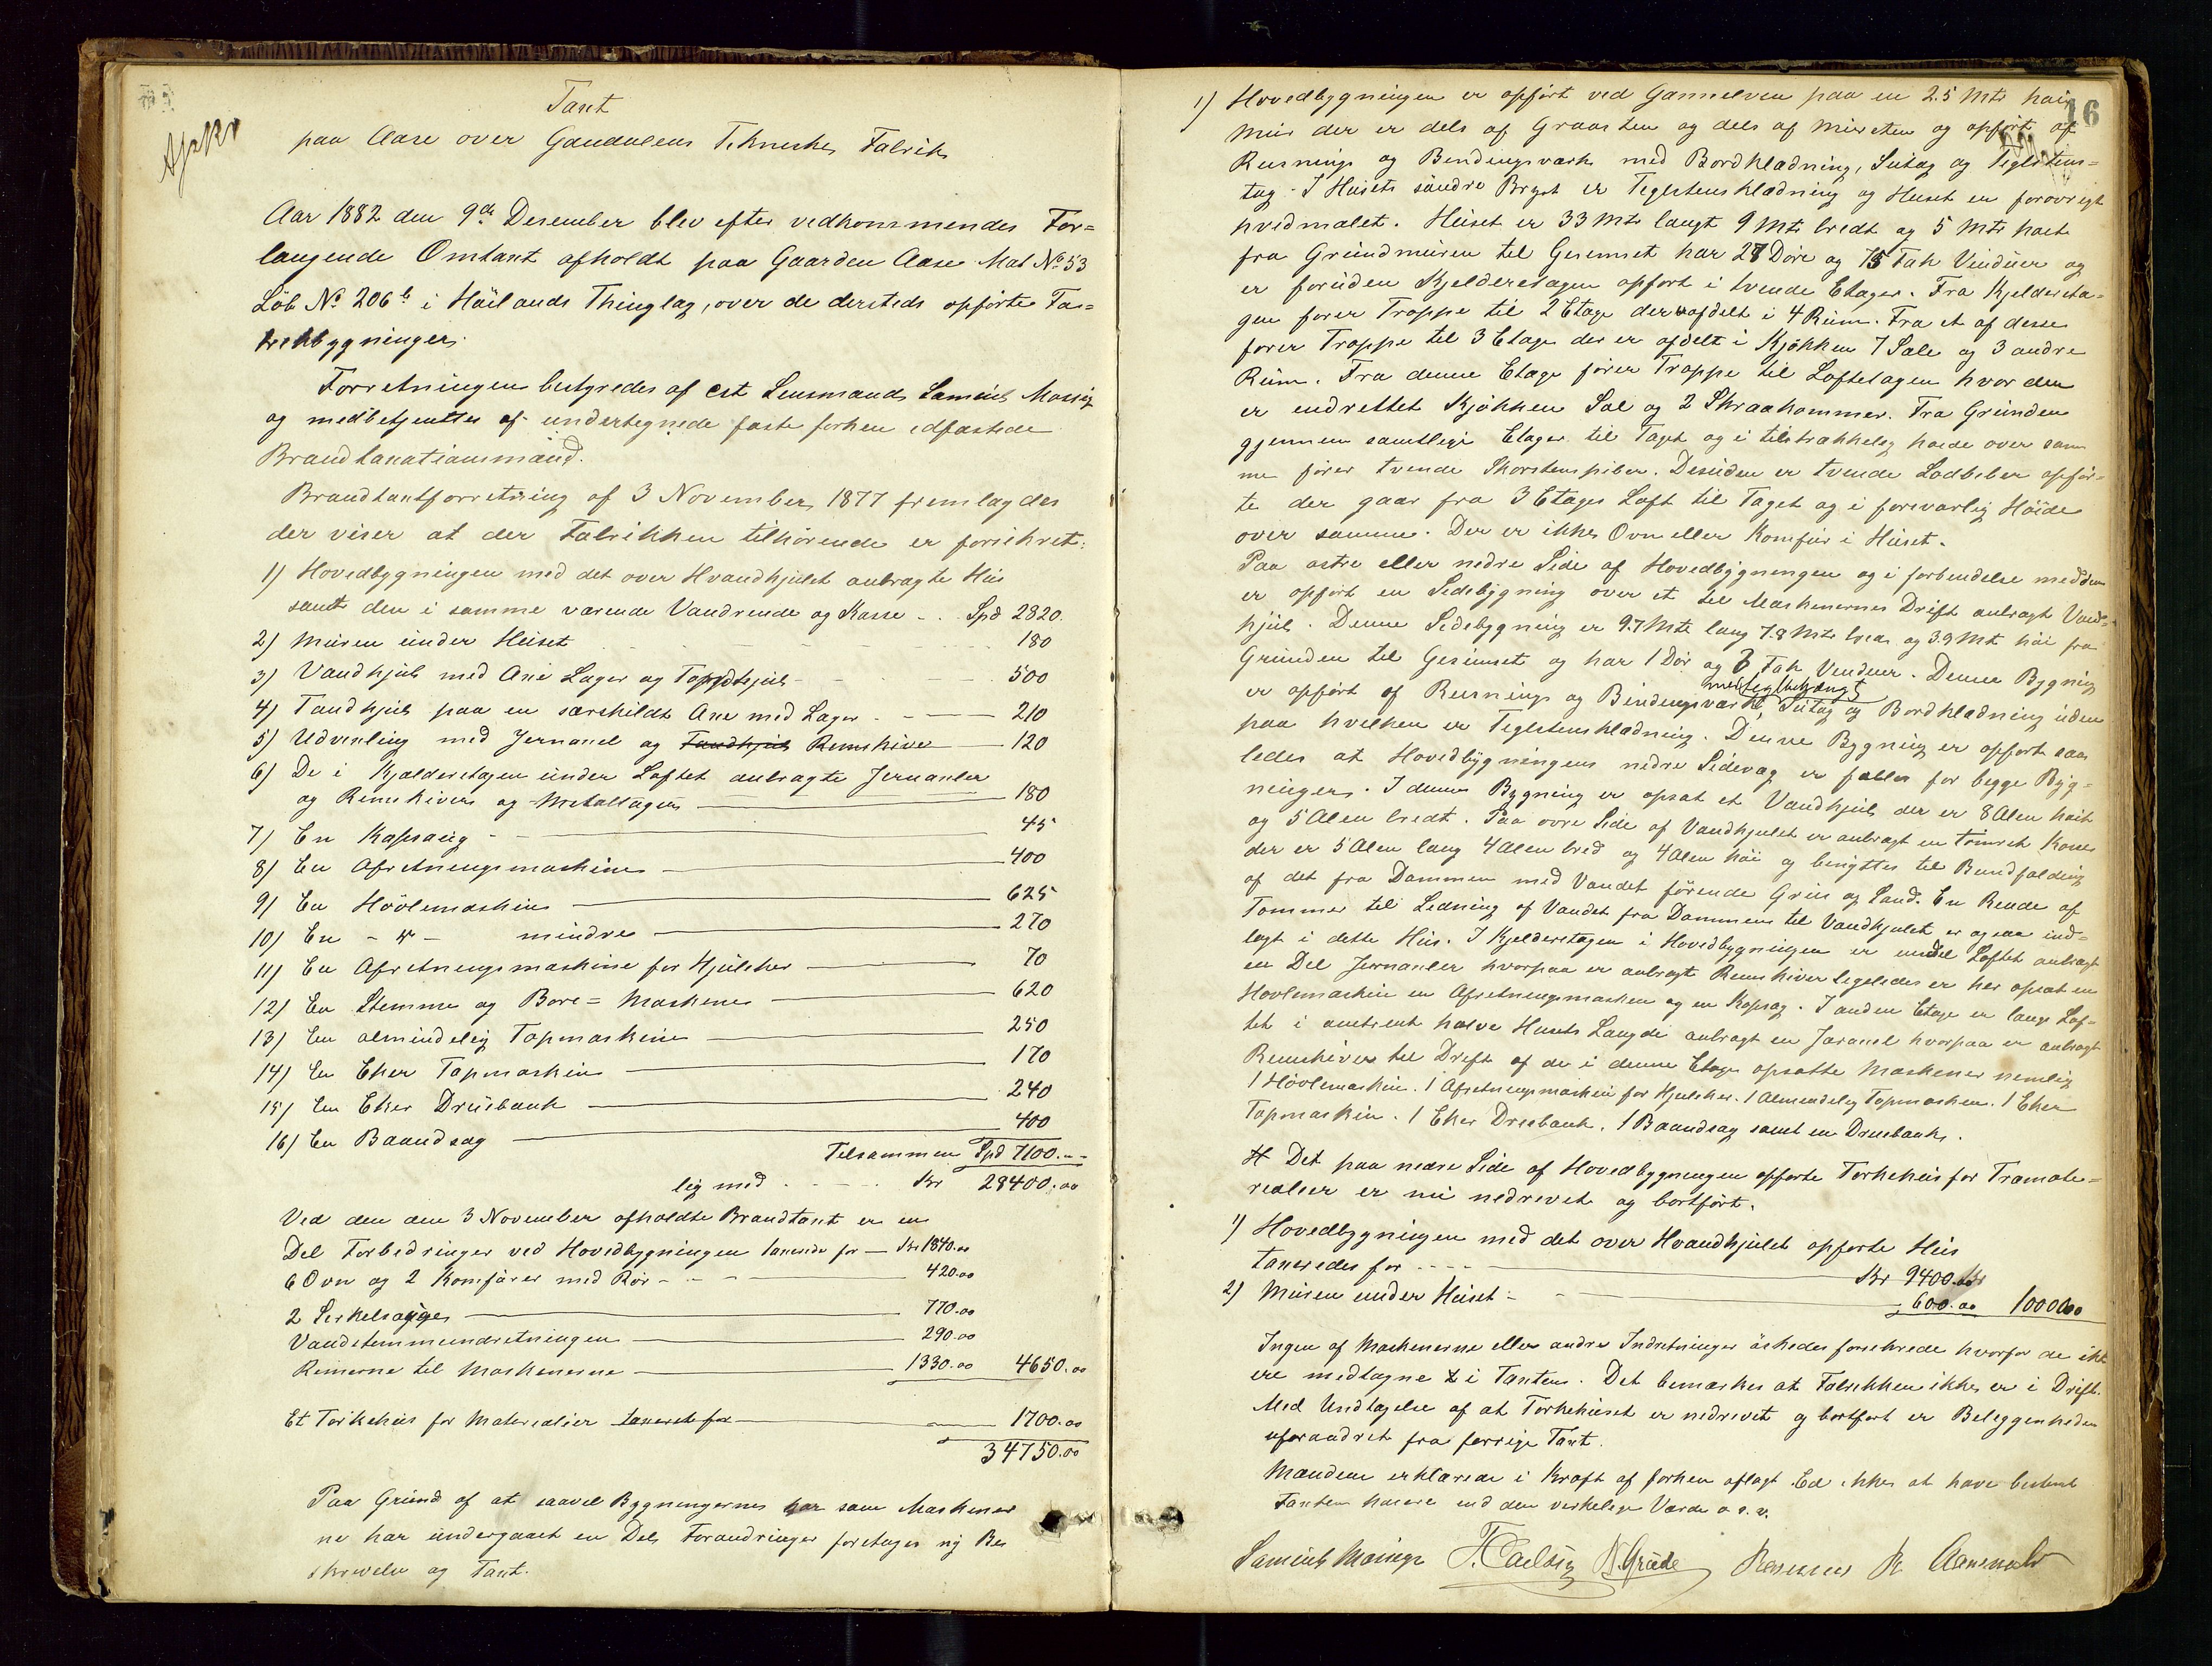 Taxt
paa Aase over Gandalens Tekniske Fabrik
Aar 1882 den 9de Desember blev efter vedkommendes For=
langende Omtaxt afholdt paa Gaarden Aase Mat No 53
Løb No 206b i Höilands Thinglag, over de dersteds opförte Fa=
brikbygninger.
Forretningen bestyredes af cst Lensmand Samuel Massig
og medbetjentes af undertegnede faste forhen edfæstede
Brandtaxationsmænd.
Brandtaxtforretning af 3 November 1877 fremlagdes
der viser at der Fabrikken tilhörende er forsikret:
1) Hovedbygningen med det over Hvandhjulet anbragte Hus
samt den i samme værende Vandrende og Kasse - . Spd 2820.
2) Muren under Huset 180
3) Vandhjul med Axe Lager og Taphjul 500
4) Tandhjul paa en særskildt Axe med Lager 210
5) Udvexling med Jernaxel og Tandhjul Remskiver 120
6) De i Kjælderetagen under Loftet anbragte Jernaxler
og Remskiver og Metallager 180
7) En Kapsaug 45
8) En Afretningsmaskine 400
9) En Hövlemaskine 625
10) En - " - mindre 270
11) En Afretningsmaskine for Hjuleker 70
12) En Stemme og Bore= Maskine 620
13) En almindelig Tapmaskine 250
14) En Eker Tapmaskine 170
15) En Eker Dreiebænk 240
16) En Baandsag 400
Tilsammen Spd 7100. --
lig med Kr 28400.00
Ved den den 3 November afholdte Brandtaxt er en
Del Forbedringer ved Hovedbygningen taxerede for — Kr 1840.00
6 Ovn og 2 Komfürer med Rör 420.00
2 Sirkelsauger 770.00
Vandstemmeindretningen 290.00
Remerne til Maskinerne 1330.00 4650.00
Et Törkehus for Materialier taxeret for 1700.00
34750.00
Paa Grund af at saavel Bygningernes som Maskiner
ne har undergaaet en Del Forandringer foretages ny Bes
krivelse og Taxt.
16
1) Hovedbygningen er opfört ved Gannelven paa en 2.5 Mtr høi
Mur der er dels af Graasten og dels af Mursten og opfört af
Reisnings og Bindingsværk med Bordklædning, Sutag og Teglstens=
tag. I Husets söndre Bryst er Teglstensklædning og Huset er forövrigt
hvidmalet. Huset er 33 Mtr langt 9 Mtr bredt og 5 Mtr höit
fra Grundmuren til Gesimset har 27 Döre og 75 Fak Vinduer og
er foruden Kjelderetagen opfört i tvende Etager. Fra Kjeldereta=
gen förer Trappe til 2 Etage der er afdelt i 4 Rum. Fra et af desse
förer Trappe til 3 Etage der er afdelt i Kjökken 7 Sale og 3 andre
Rum. Fra denne Etage förer Trappe til Loftetagen hvor der
er endrettet Kjökken Sal og 2 Skraakammer. Fra Grunden
gjennem samtlige Etager til Taget og i tilstrækkelig höide over sam
me förer tvende Skorstenspiber. Desuden er tvende Lodbeber opför=
te der gaar fra 3 Etages Loft til Taget og i forsvarlig Höide
over samme. Der er ikke Ovn eller Komfür i Huset.
Paa östre eller nedre Side af Hovedbygningen og i forbendelse med den
er opfört en Sidebygning over et til Maskenernes Drift anbragt Vand=
hjul. Denne Sidebygning er 9.7 Mtr lang 7.8 Mtr bred og 3.9 Mtr höi fra
Grunden til Gesimset og har 1 Dör og 6 Fak Vinduer. Denne Bygning
med teglbehængt
er opfört af Reisnings og Bindingsværk, Sutag og Bordklædning uden
paa hvilken er Teglstensklædning. Denne Bygning er opfört saa
ledes at Hovedbygningens nedre Sidevæg er fælles for begge Byg=
ninger. I denne Bygning er opsat et Vandhjul der er 8 Alen höit
og 5 Alen bredt. Paa övre Side af Vandhjulet er anbragt en tömret Kasse
der er 5 Alen lang 4 Alen bred og 4 Alen höi og benyttes til Bundfalding
af det fra Dammen med Vandet förende Grus og Sand. En Rende af
Tömmer til Ledning af Vandet fra Dammen til Vandhjulet er ogsaa ind=
lagt i dette Hus. I Kjelderetagen i Hovedbygningen er under Loftet anbragt
en Del Jernaxler hvorpaa er anbragt Remskiver ligeledes er her opsat en
Hövlemaskin en Afretningsmasken og en Kapsag. I anden Etage er langs Lof=
tet i omtrent halve Husets Længde anbragt en Jernaxel hvorpaa er anbragt
Remskiver til Drift af de i denne Etage opsatte Maskener nemlig
1 Hövlemaskin. 1 Afretningsmaskin for Hjuleker. 1 Almendelig Tapmasken. 1 Eker
Tapmaskin. 1 Eker Dreiebænk. 1 Baandsag samt en Dreiebænk.
# Det paa nedre Side af Hovedbygningen opförte Törkehus for Træmate=
rialier er nu nedrevet og bortfört.
1) Hovedbygningen med det over Hvandhjulet opförte Hus
taxeredes for Kr 9400.00
2) Muren under Huset 600.00 10000.00
Ingen af Maskenerne eller andre Indretninger öskedes forsikrede hvorfor de ikke
ere medtagne i Taxten. Det bemærkes at Fabrikken ikke er i Drift.
Med Undtagelse af at Törkehuset er nedrevet og bortfört er Beleggenheden
uforandret fra forrige Taxt.
Mændene erklærede i Kraft af forhen aflagt Ed ikke at have bestemt
Taxten höiere end den verkelige Værde o. s. v.